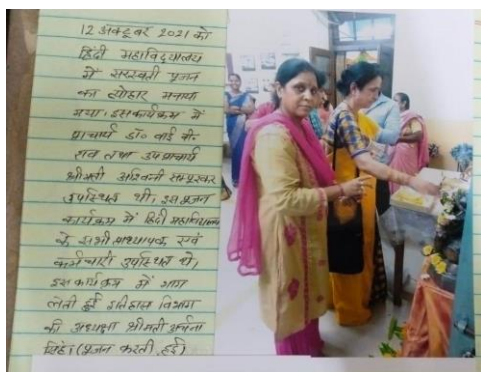 12 अक्टूबर 2021 को
हिंदी महाविद्यालय
में सरस्वती पूजन
का त्योहार मनाया
गया। इस कार्यक्रम में
प्राचार्य डॉ० वाई वी०
राव तथा उपप्राचार्य
श्रीमती अश्विनी
उपस्थित थी। इस पूजन
कार्यक्रम में हिंदी महाविद्यालय
के सभी प्राध्यापक एवं
कर्मचारी उपस्थित थे,
इस कार्यक्रम में भाग
लेती हुई इतिहास विभाग
की अध्यक्षा श्रीमती अर्चना
सिंह। (पूजन करती हुई)